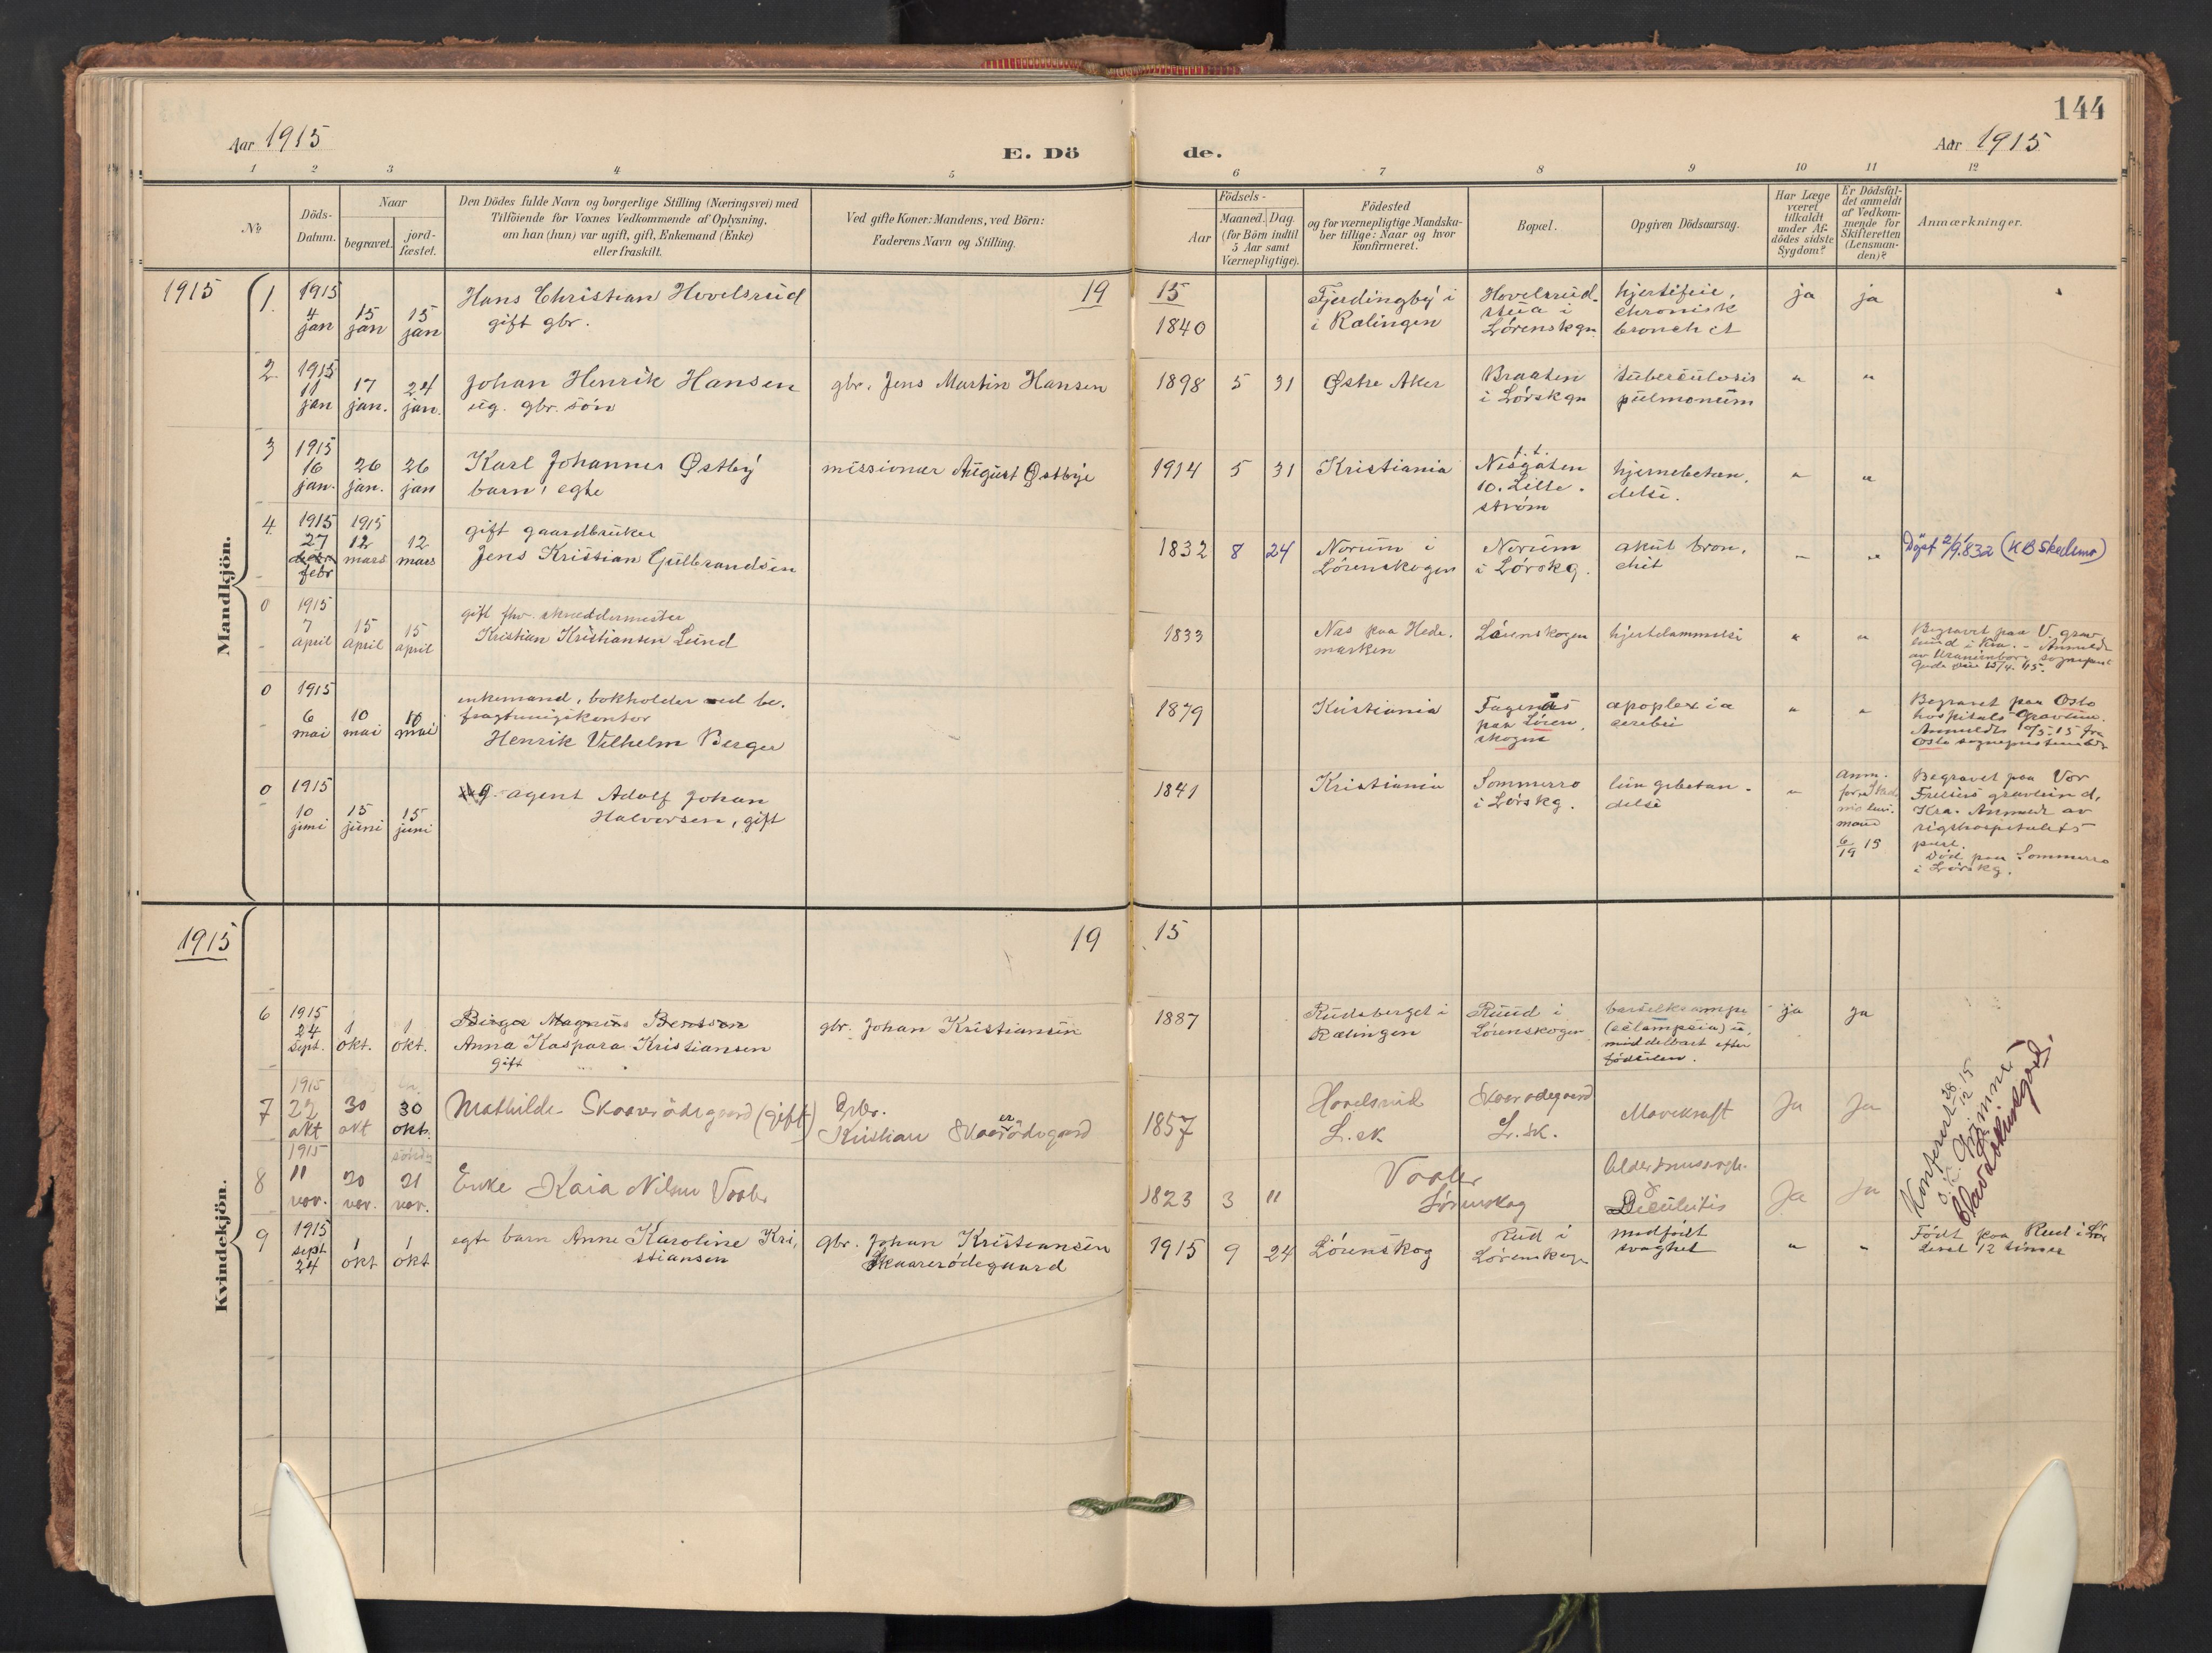 144
Aar 1915
E. Dö
de.
Aar 1915
1 2 3 4 5 6 7 8 9 10 11 12
No
Döds-
Datum.
Naar
begravet.
jord-
fæstet.
Den Dödes fulde Navn og borgerlige Stilling (Næringsvei) med
Tilföiende for Voxnes Vedkommende af Oplysning,
om han (hun) var ugift, gift, Enkemand (Enke)
eller fraskilt.
Ved gifte Koner: Mandens, ved Börn:
Faderens Navn og Stilling.
Födsels-
Aar
Maaned. Dag.
(for Börn indtil
5 Aar samt
Værnepligtige).
Födested
og for værnepligtige Mandska-
ber tillige: Naar og hvor
konfirmeret.
Bopæl.
Opgiven Dödsaarsag.
Har Læge
været
tilkaldt
under Af-
dödes sidste
Sygdom?
Er Dödsfal-
det anmeldt
af Vedkom-
mende for
Skifteretten
(Lensman-
den)?
Anmærkninger.
Mandkjön.
1915
19
15
1.
1915
4
jan
15
jan
15
jan
Hans Christian Hovelsrud
gift gbr.
1840
Fjerdingby i
i Rælingen
Hovelsrud-
stua i
Lørenskgn
hjertefeil,
chronisk
bronchit
ja
ja
2.
1915
11
jan
17
jan.
24
jan.
Johan Henrik Hansen
ug. gbr. søn
gbr. Jens Martin Hansen
1898 5 31
Østre Aker
Braaten
i Lørskgn
tuberculosis
pulmonum
" "
3
1915
16
jan.
26
jan.
26
jan
Karl Johannes Østby
barn, egte
missionær August Østbye
1914 5 31
Kristiania
t.t.
Nesgaten
10. Lille-
strøm
hjernebetæn-
delse.
" "
4.
1915
27
febr
1915
12
mars
12
mars
gift gaardbruker
Jens Kristian Gulbrandsen
1832 8 24
Norum i
Lørenskogen
Norum
i Lørskg.
akut bron-
chit
" "
Døpt 2/9 1832 (KB Skedsmo)
0
1915
7
april
15
april
15
april
gift fhv. skræddermester
Kristian Kristiansen Lund
1833
Nas paa Hede-
marken
Lørenskogen
hjertelammelse
" "
Begravet paa V. grav-
lund i Kra. - Anmeldt
av Uranienborg sogneprest
0
1915
6
mai
10
mai
10
mai
enkemand, bokholder ved be-
fragtningskontor
Henrik Vilhelm Berger
1879
Kristiania
Fagernes
paa Løren-
skogen
apoplexia
cerebri
" "
Begravet paa Oslo
hospitals Gravlund.
Anmeldt 10/5-15 fra
Oslo sogneprestembede
0
1915
10
juni
15
juni
15
juni
agent Adolf Johan
Halvorsen, gift
1841
Kristiania
Sommerro
i Lørskg.
lungebetæn-
delse
"
anm.
mand
6/19 15
Begravet paa Vor
Frelsers gravlund,
Kra. Anmeldt av
rigshospitalets
prest.
Død paa Sommerro
i Lørskg.
Kvindekjön.
1915
19
15
6
1915
24
sept.
1
okt.
1
okt.
Birger Magnus Berntsen
Anna Kaspara Kristiansen
gift
gbr. Johan Kristiansen
1887
Rudsberget i
Rælingen
Ruud i
Lørenskogen
barselkrampe
(eclampsia) u-
middelbart efter
fødselen.
ja
ja
7
1915
22
okt
30
okt
30
okt.
Mathilde Skaarerödegaard (gift)
Gbr.
Kristian Skaarerödegaard
1857
Hovelsrud
L.sk.
Skaarerødegaard
L.sk.
Mavekræft
Ja
Ja
8
1915
11
nov.
20
nov.
søndag
21
nov.
Enke Kaia Nilsen Vaaler
1823 3 11
Vaaler
Lørenskog
Ja
Ja
9
1915
sept
24
1
okt
1
okt
egte barn Anne Karoline Kri-
stiansen
gbr. Johan Kristiansen
Skaarerødegaard
1915 9 24
Lørenskog
Rud i
Lørenskogn
medfødt
svaghet
" "
Født paa Rud i Lør
Levet 12 timer
Konferert 28/12 15